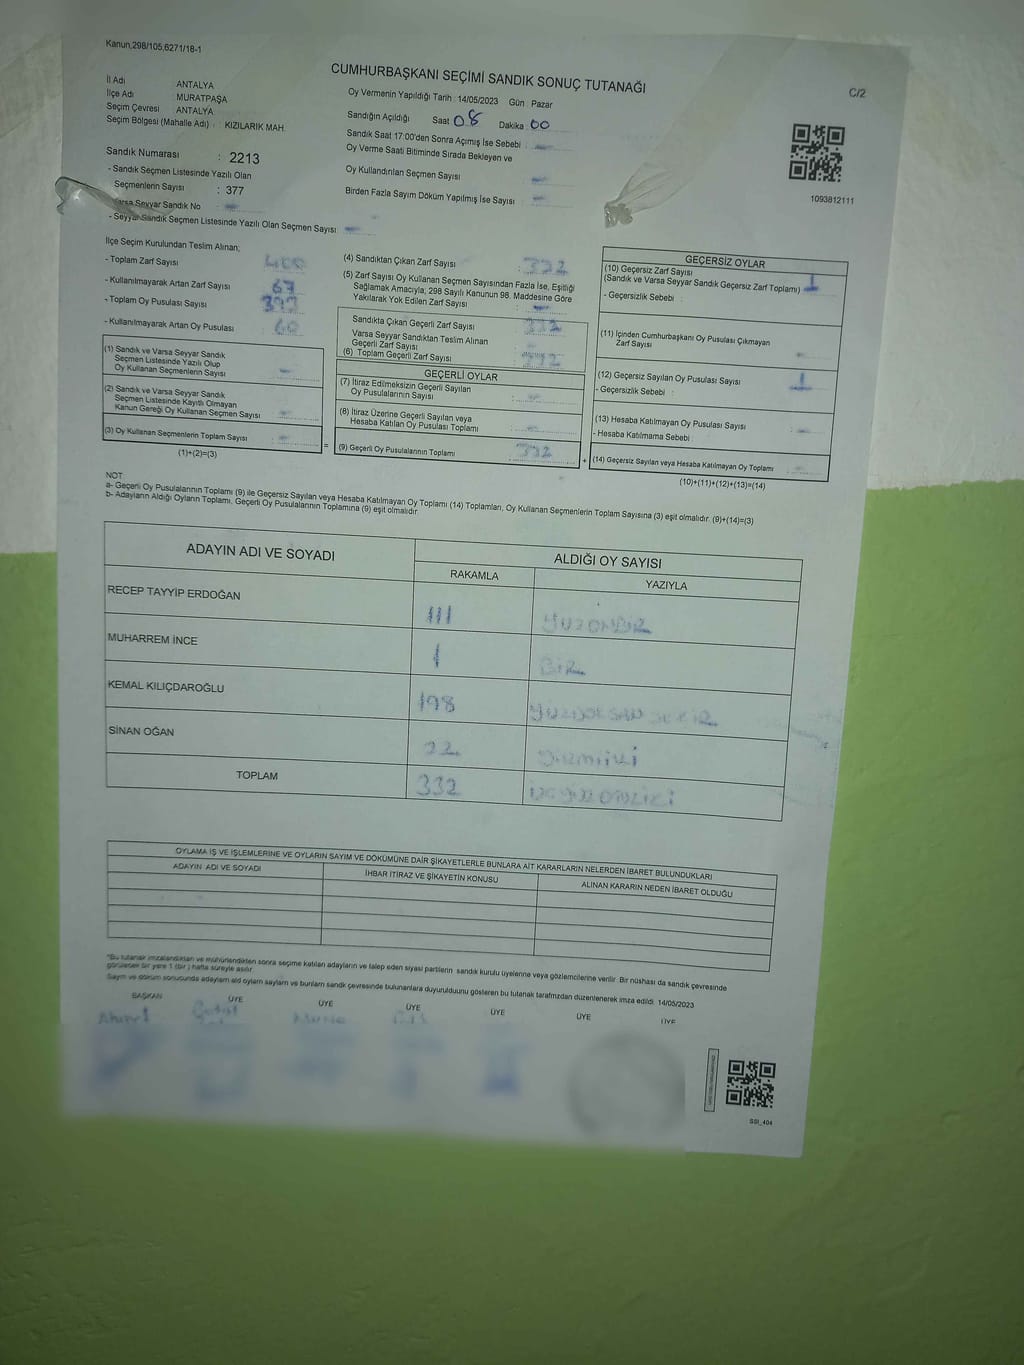 Kanun,298/105,6271/18-1
CUMHURBAŞKANI SEÇİMİ SANDIK SONUÇ TUTANAĞI
C/2
İl Adı ANTALYA
İlçe Adı MURATPAŞA
Seçim Çevresi ANTALYA
Seçim Bölgesi (Mahalle Adı) : KIZILARIK MAH.
Sandık Numarası : 2213
- Sandık Seçmen Listesinde Yazılı Olan
Seçmenlerin Sayısı : 377
Varsa Seyyar Sandık No
- Seyyar Sandık Seçmen Listesinde Yazılı Olan Seçmen Sayısı
Oy Vermenin Yapıldığı Tarih : 14/05/2023 Gün : Pazar
Sandığın Açıldığı Saat 08 Dakika : 00
Sandık Saat 17:00'den Sonra Açımış İse Sebebi :
Oy Verme Saati Bitiminde Sırada Bekleyen ve
Oy Kullandırılan Seçmen Sayısı
Birden Fazla Sayım Döküm Yapılmış İse Sayısı
1093812111
İlçe Seçim Kurulundan Teslim Alınan;
- Toplam Zarf Sayısı 400
- Kullanılmayarak Artan Zarf Sayısı : 67
- Toplam Oy Pusulası Sayısı
- Kullanılmayarak Artan Oy Pusulası
(1) Sandık ve Varsa Seyyar Sandık
Seçmen Listesinde Yazılı Olup
Oy Kullanan Seçmenlerin Sayısı
(2) Sandık ve Varsa Seyyar Sandık
Seçmen Listesinde Kayıtlı Olmayan
Kanun Gereği Oy Kullanan Seçmen Sayısı
(3) Oy Kullanan Seçmenlerin Toplam Sayısı
(1)+(2)=(3)
(4) Sandıktan Çıkan Zarf Sayısı : 332
(5) Zarf Sayısı Oy Kullanan Seçmen Sayısından Fazla İse, Eşitliği
Sağlamak Amacıyla; 298 Sayılı Kanunun 98. Maddesine Göre
Yakılarak Yok Edilen Zarf Sayısı
Sandıkta Çıkan Geçerli Zarf Sayısı : 332
Varsa Seyyar Sandıktan Teslim Alınan
Geçerli Zarf Sayısı
(6) Toplam Geçerli Zarf Sayısı : 332
GEÇERLİ OYLAR
(7) İtiraz Edilmeksizin Geçerli Sayılan
Oy Pusulalarının Sayısı
(8) İtiraz Üzerine Geçerli Sayılan veya
Hesaba Katılan Oy Pusulası Toplamı
=
(9) Geçerli Oy Pusulalarının Toplamı : 332
+
GEÇERSİZ OYLAR
(10) Geçersiz Zarf Sayısı
(Sandık ve Varsa Seyyar Sandık Geçersiz Zarf Toplamı) 1
- Geçersizlik Sebebi :
(11) İçinden Cumhurbaşkanı Oy Pusulası Çıkmayan
Zarf Sayısı
(12) Geçersiz Sayılan Oy Pusulası Sayısı 1
- Geçersizlik Sebebi :
(13) Hesaba Katılmayan Oy Pusulası Sayısı
- Hesaba Katılmama Sebebi :
(14) Geçersiz Sayılan veya Hesaba Katılmayan Oy Toplamı
(10)+(11)+(12)+(13)=(14)
NOT
a- Geçerli Oy Pusulalarının Toplamı (9) ile Geçersiz Sayılan veya Hesaba Katılmayan Oy Toplamı (14) Toplamları, Oy Kullanan Seçmenlerin Toplam Sayısına (3) eşit olmalıdır. (9)+(14)=(3)
b- Adayların Aldığı Oyların Toplamı, Geçerli Oy Pusulalarının Toplamına (9) eşit olmalıdır.
ADAYIN ADI VE SOYADI ALDIĞI OY SAYISI
RAKAMLA YAZIYLA
RECEP TAYYİP ERDOĞAN 111 YÜZONBİR
MUHARREM İNCE 1 BİR
KEMAL KILIÇDAROĞLU 198 YÜZDOKSAN SEKİZ
SİNAN OĞAN 22 yirmiiki
TOPLAM 332
OYLAMA İŞ VE İŞLEMLERİNE VE OYLARIN SAYIM VE DÖKÜMÜNE DAİR ŞİKAYETLERLE BUNLARA AİT KARARLARIN NELERDEN İBARET BULUNDUKLARI
ADAYIN ADI VE SOYADI İHBAR İTİRAZ VE ŞİKAYETİN KONUSU ALINAN KARARIN NEDEN İBARET OLDUĞU
*Bu tutanak imzalandıktan ve mühürlendikten sonra seçime katılan adayların ve talep eden siyasi partilerin sandık kurulu üyelerine veya gözlemcilerine verilir. Bir nüshası da sandık çevresinde
görülecek bir yere 1 (bir ) hafta süreyle asılır.
Sayım ve döküm sonucunda adayların aldığı oyların sayılarını ve bunların sandık çevresinde bulunanlara duyurulduunu gösteren bu tutanak tarafımızdan düzenlenerek imza edildi. 14/05/2023
BAŞKAN ÜYE ÜYE ÜYE ÜYE ÜYE ÜYE
Ahmet
SSI_404